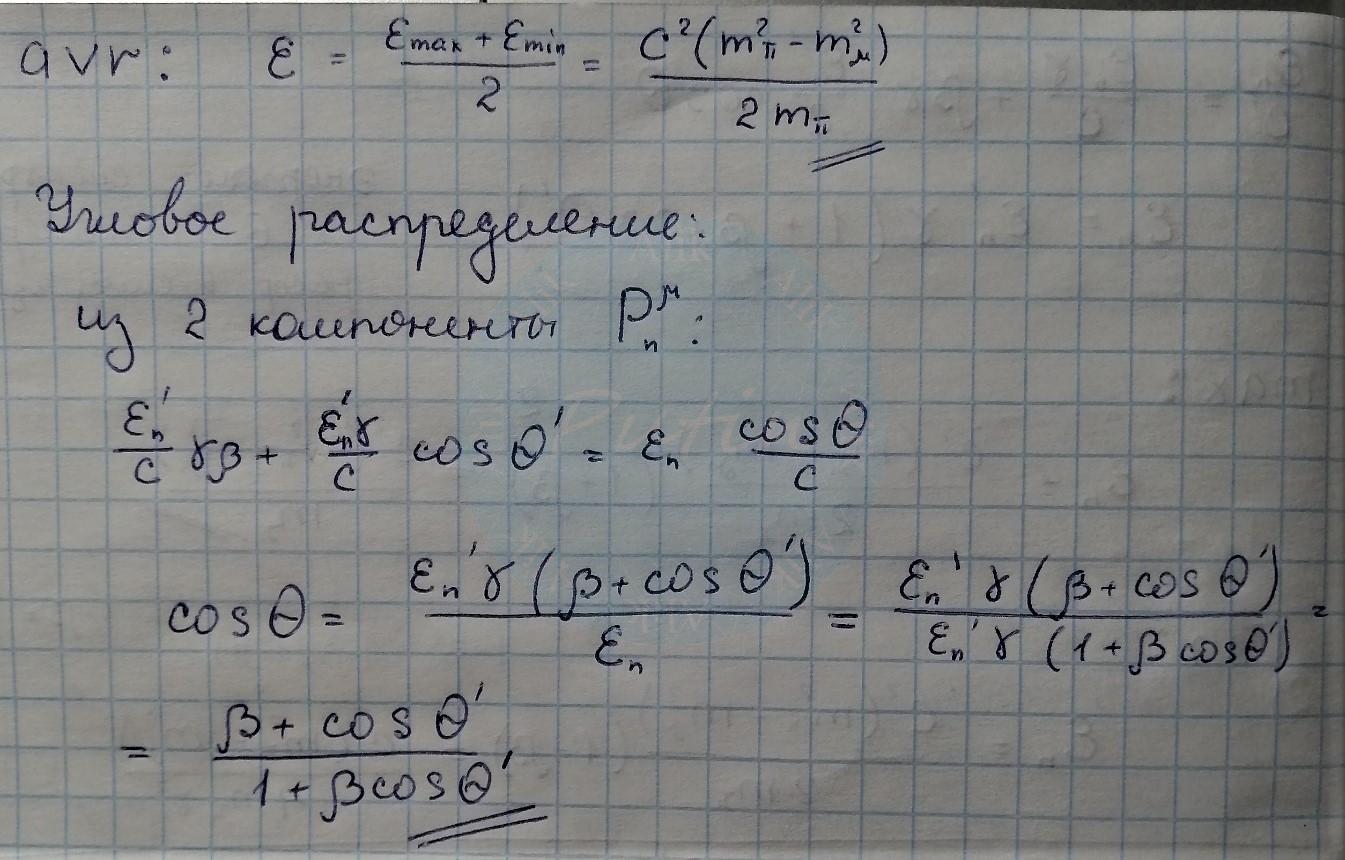 avr: ε = (εmax + εmin)/2 = c²(m²π - m²μ)/(2mπ)
Угловое распределение:
из 2 компоненты Pₙ^μ:
εₙ'/c γβ + εₙ'γ/c cos θ' = εₙ cos θ/c
cos θ = εₙ'γ(β + cos θ')/εₙ = εₙ'γ(β + cos θ')/(εₙ'γ(1 + β cos θ')) =
= (β + cos θ')/(1 + β cos θ')